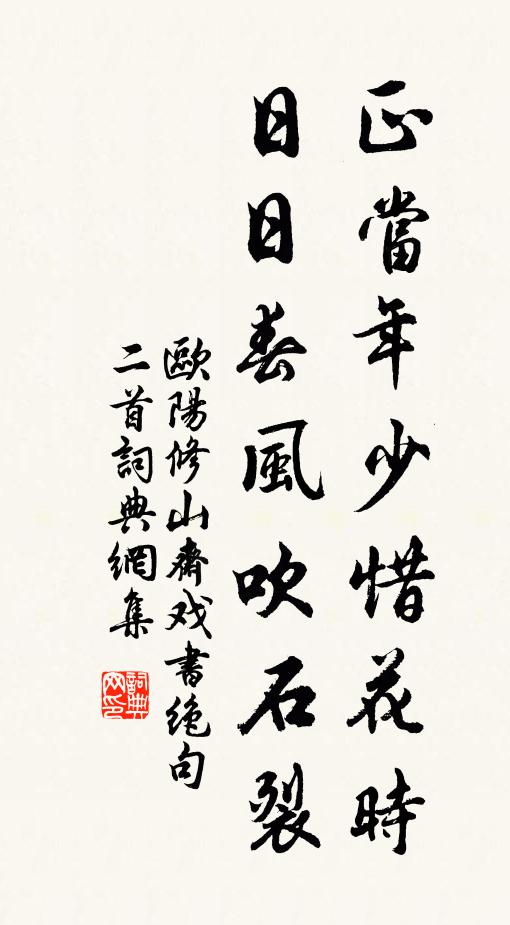 正當年少惜花時
日日春風吹石裂
歐陽修山齋戏書绝句
二首詞典網集
詞典网印